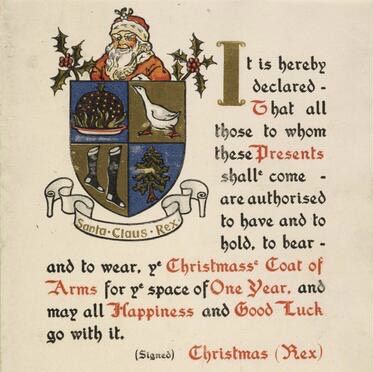 Santa · Claus · Rex
It is hereby
declared -
That all
those to whom
these Presents
shallᵉ come -
are authorised
to have and to
hold, to bear -
and to wear, yᵉ Christmassᵉ Coat of
Arms for yᵉ space of One Year, and
may all Happiness and Good Luck
go with it.
(Signed) Christmas (Rex)